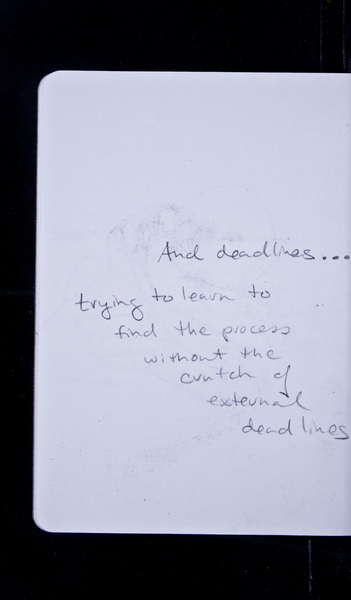 And deadlines...
trying to learn to
find the process
without the
crutch of
external
deadlines